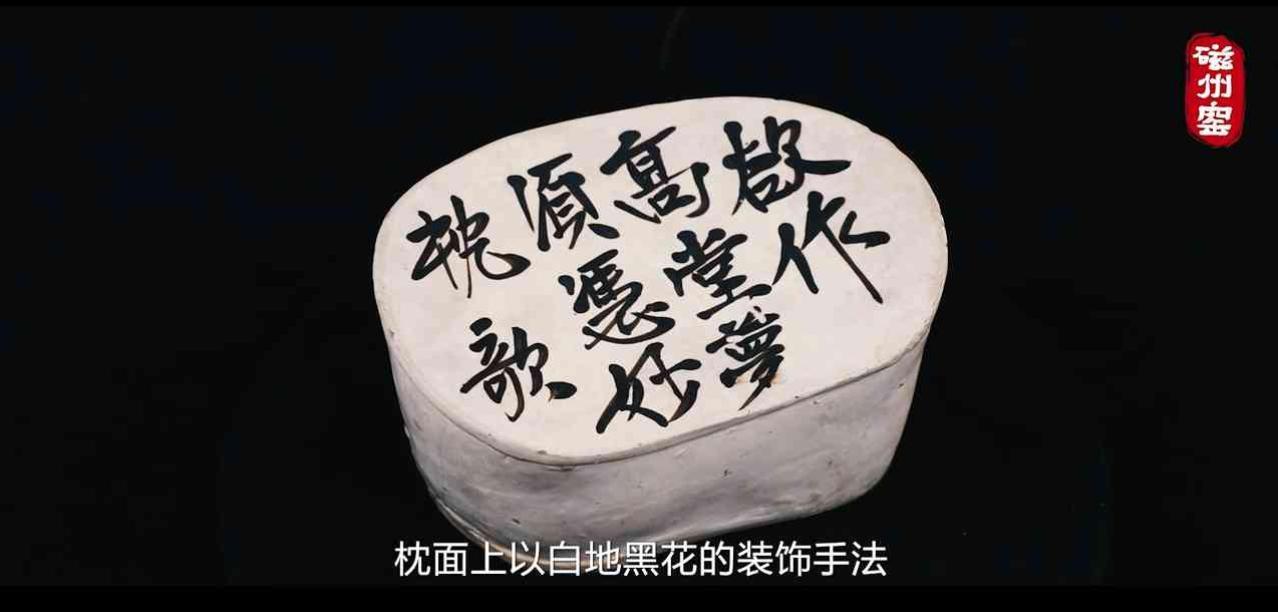 磁州窑
欲作
高堂夢
須憑好
枕歌
枕面上以白地黑花的装饰手法